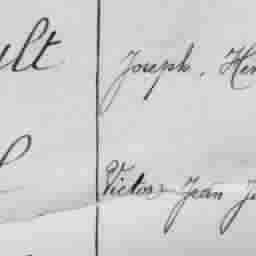 ult Joseph, Hen
Victor Jean J